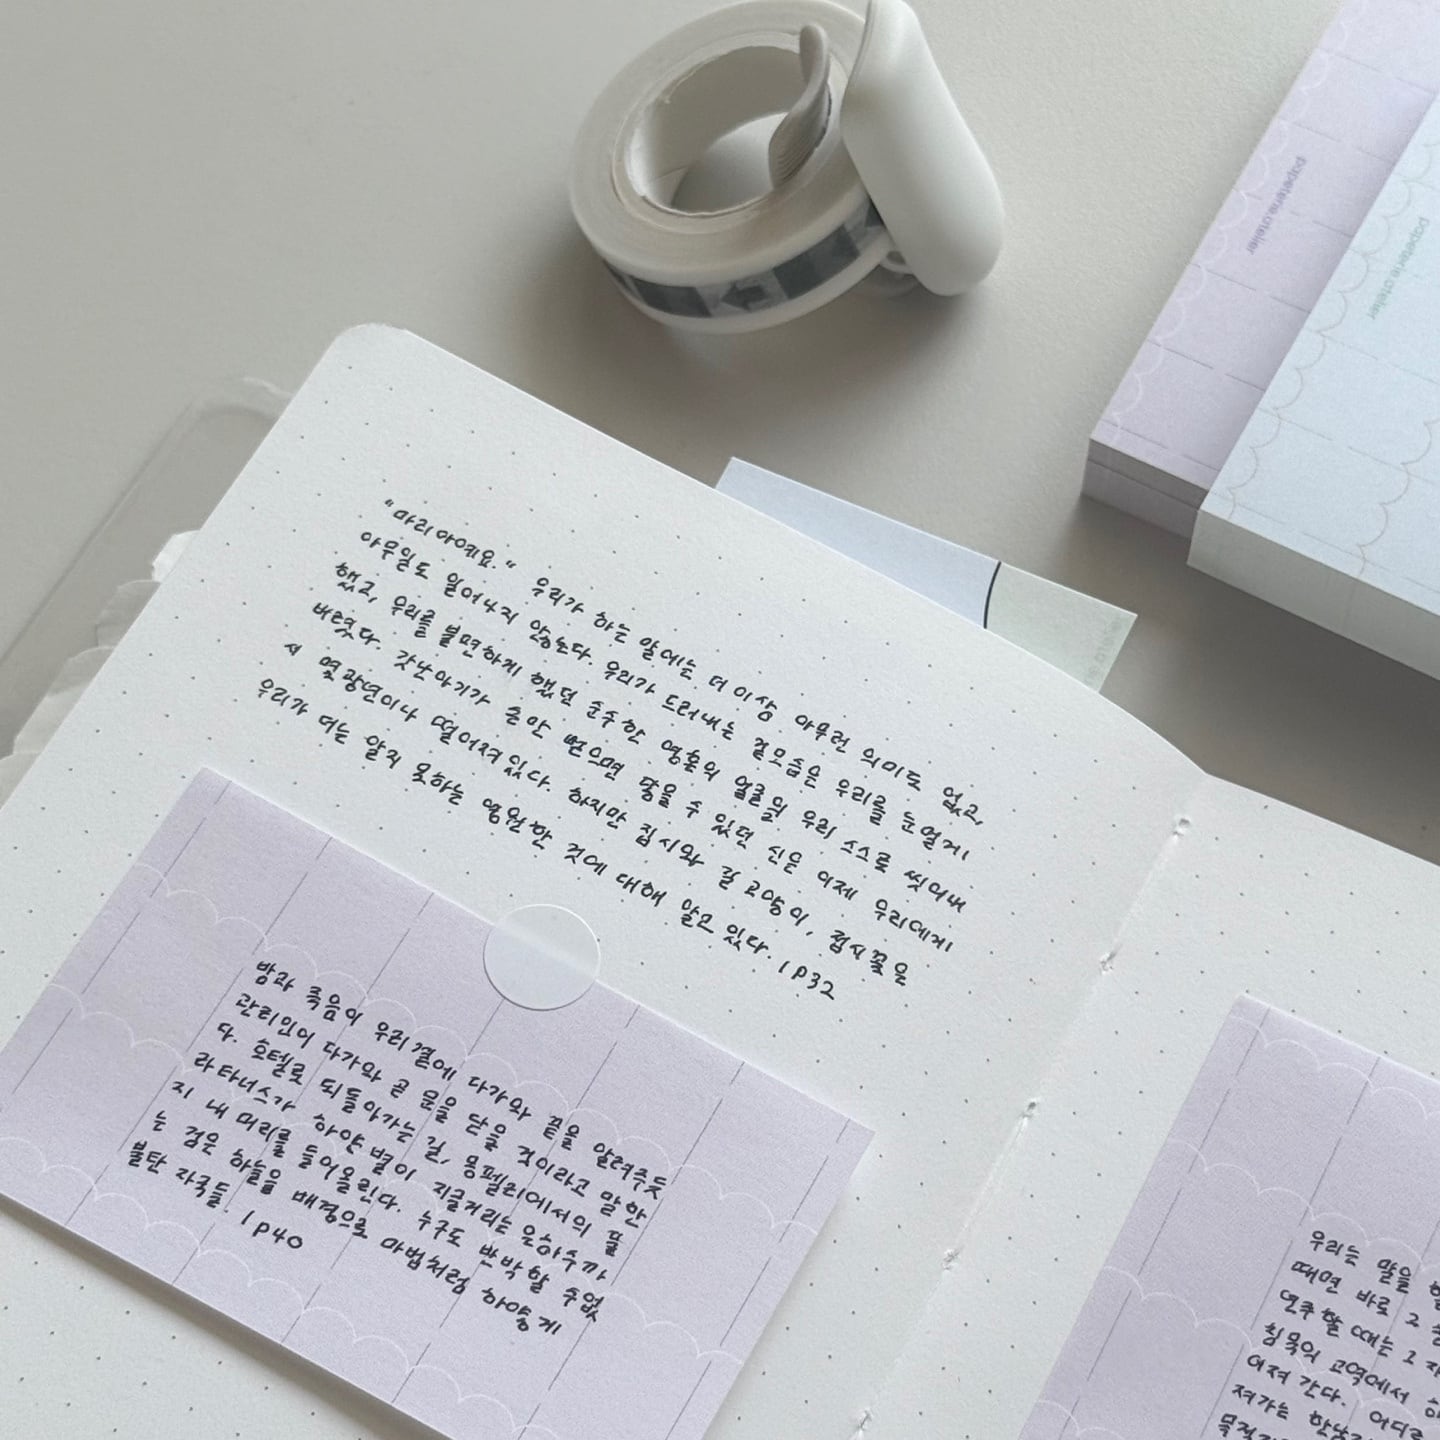 "마리아예요." 우리가 하는 말에는 더 이상 아무런 의미도 없고,
아무일도 일어나지 않는다. 우리가 드러내는 겉모습은 우리를 눈멀게
했고, 우리를 불편하게 했던 순수한 영혼의 얼굴을 우리 스스로 씻어내
버렸다. 갓난아기가 손만 뻗으면 닿을 수 있던 신은 이제 우리에게
서 몇 광년이나 떨어져 있다. 하지만 집시와 길고양이, 접시꽃은
우리가 더는 알지 못하는 영원한 것에 대해 알고 있다. / p32
밤과 죽음이 우리 곁에 다가와 끝을 알려주듯
관리인이 다가와 곧 문을 닫을 것이라고 말한
다. 호텔로 되돌아가는 길, 몽펠리에서의 플
라타너스가 하얀 별이 지글거리는 은하수까
지 내 머리를 들어올린다. 누구도 반박할 수없
는 검은 하늘을 배경으로 마법처럼 하얗게
불탄 자국들. / p40
우리는 말을
때면 바로 그
연주할 때는 그
침묵의 교역에서
어져 간다. 어디로
져가는
papeterie.atelier
papeterie.atelier